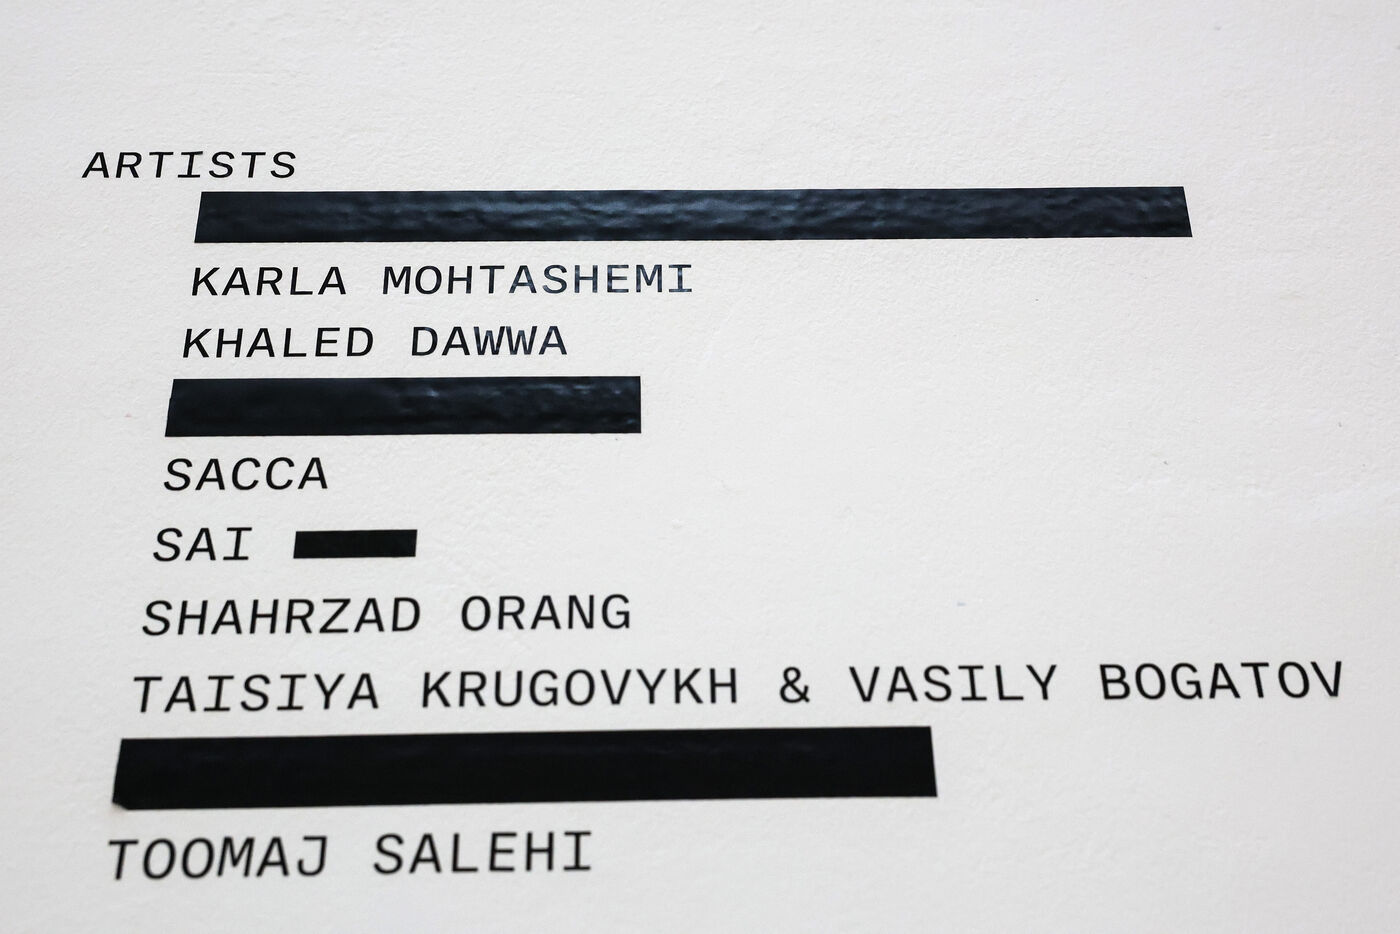 ARTISTS
KARLA MOHTASHEMI
KHALED DAWWA
SACCA
SAI
SHAHRZAD ORANG
TAISIYA KRUGOVYKH & VASILY BOGATOV
TOOMAJ SALEHI